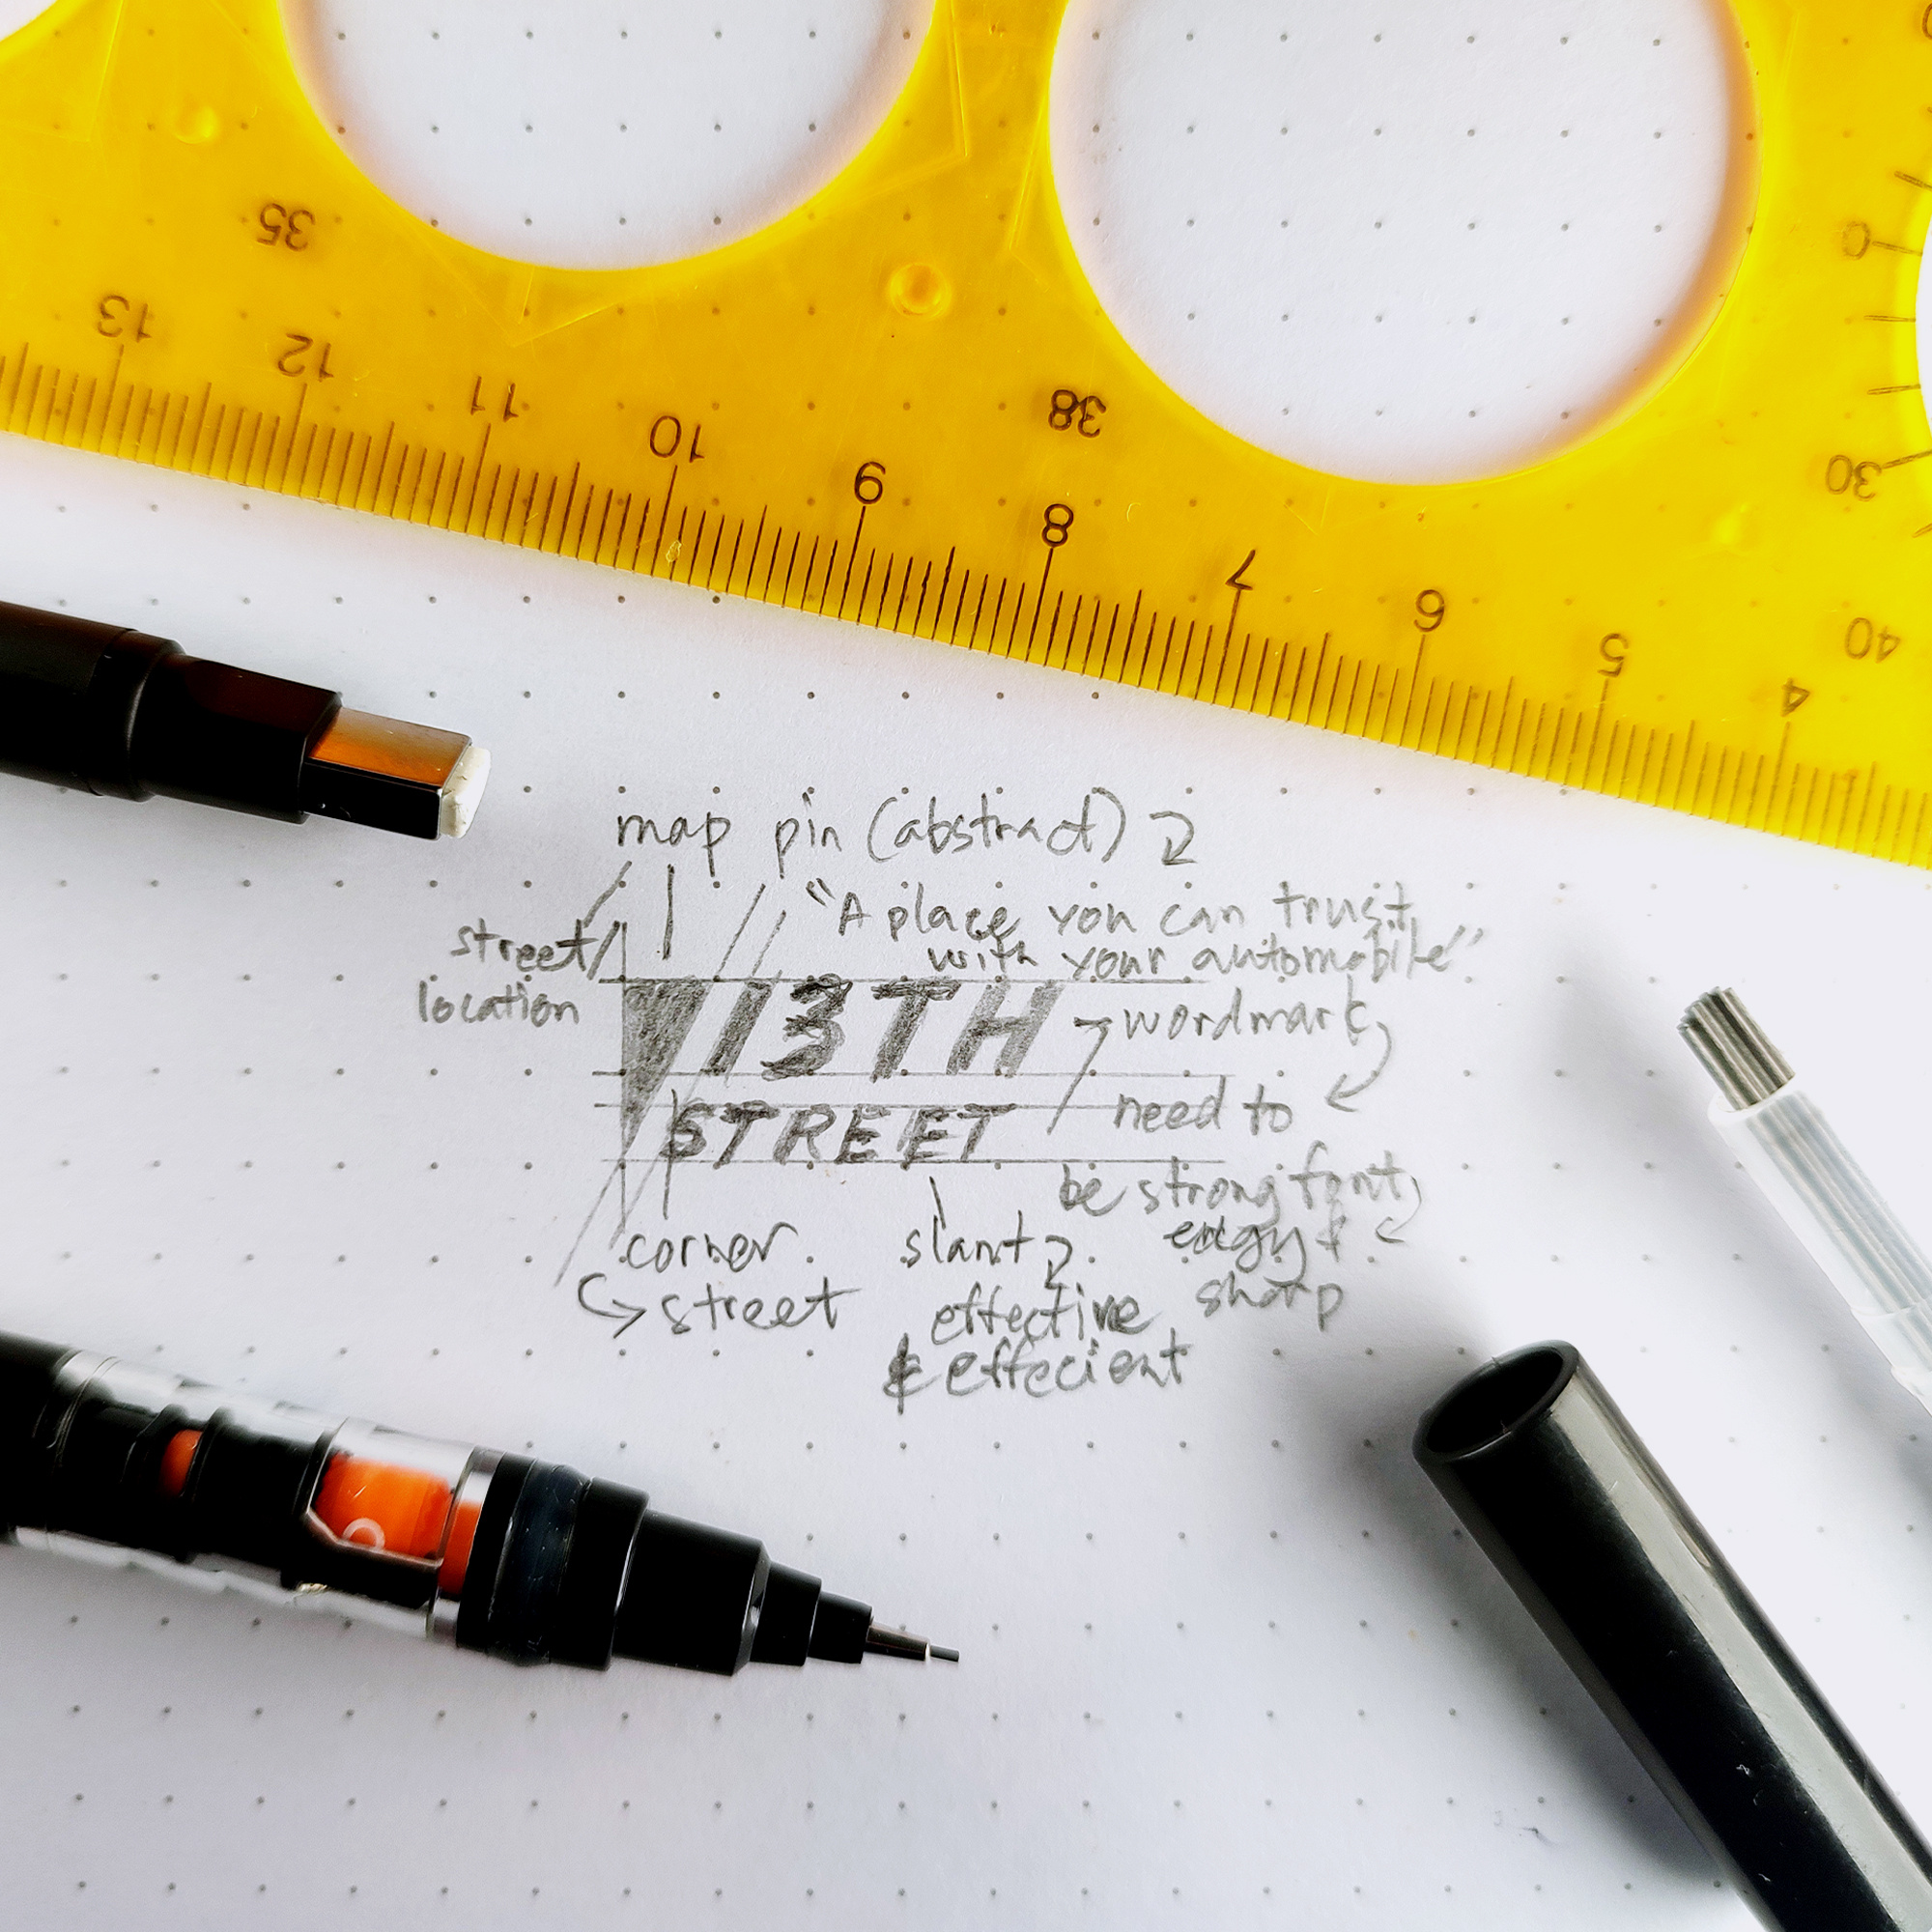 35
13
12
11
10
9
38
8
7
6
5
4
0
30
40
map pin (abstract)
"A place you can trust
with your automobile"
street/
location
13TH
STREET
wordmark
need to
be strong font,
edgy &
sharp
corner
street
slant
effective
& effecient